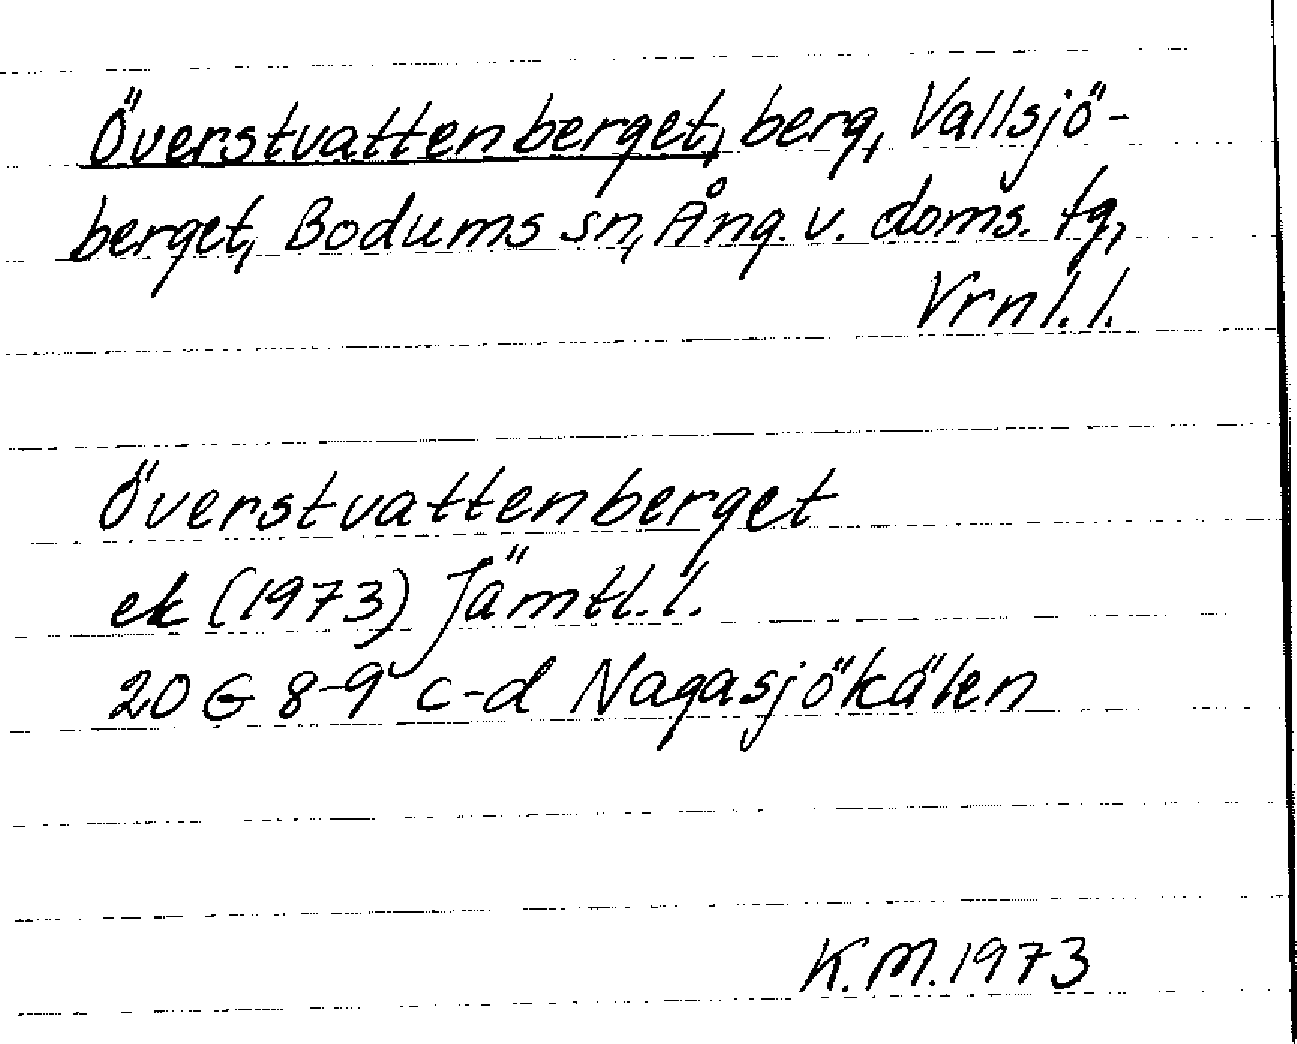 Överstvattenberget, berg, Vallsjö-
berget, Bodums sn, Ång. v. doms. tg,
Vrnl. l.
Överstvattenberget
ek (1973) Jämtl. l.
20 G 8-9 c-d Nagasjökälen
K.M. 1973